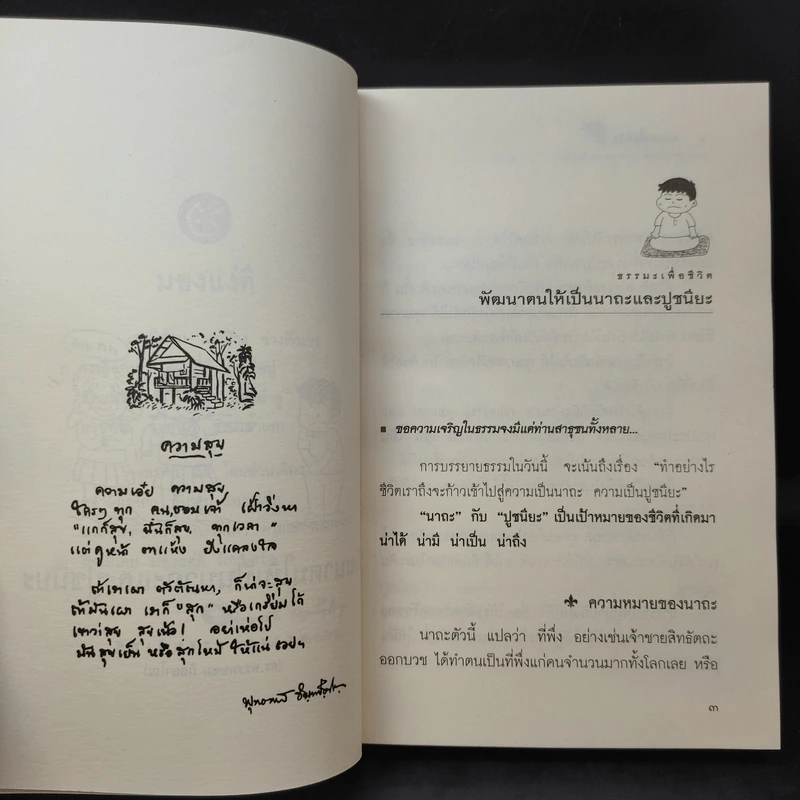 ความสุข
ความเอ๋ย ความสุข
ใครๆ ทุก คน,ชอบเจ้า เฝ้าวิ่งหา
"แกก็สุข, ฉันก็สุข, ทุกเวลา"
แต่ดูหน้า ตาแห้ง ยังแคลงใจ
ถ้าเราเผา ตัวตัณหา, ก็น่าจะสุข
ถ้ามันเผา เราก็ "สุก" หรือเกรียมได้
เขาว่าสุข สุขเน้อ! อย่าเห่อไป
มันสุขเย็น หรือสุกไหม้ ให้แน่เอยฯ
พุทธทาส อินทปัญโญ
ธรรมะเพื่อชีวิต
พัฒนาตนให้เป็นนาถะและปูชนียะ
ขอความเจริญในธรรมจงมีแด่ท่านสาธุชนทั้งหลาย...
การบรรยายธรรมในวันนี้ จะเน้นถึงเรื่อง "ทำอย่างไร
ชีวิตเราถึงจะก้าวเข้าไปสู่ความเป็นนาถะ ความเป็นปูชนียะ"
"นาถะ" กับ "ปูชนียะ" เป็นเป้าหมายของชีวิตที่เกิดมา
น่าได้ น่ามี น่าเป็น น่าถึง
ความหมายของนาถะ
นาถะตัวนี้ แปลว่า ที่พึ่ง อย่างเช่นเจ้าชายสิทธัตถะ
ออกบวช ได้ทำตนเป็นที่พึ่งแก่คนจำนวนมากทั้งโลกเลย หรือ
๓